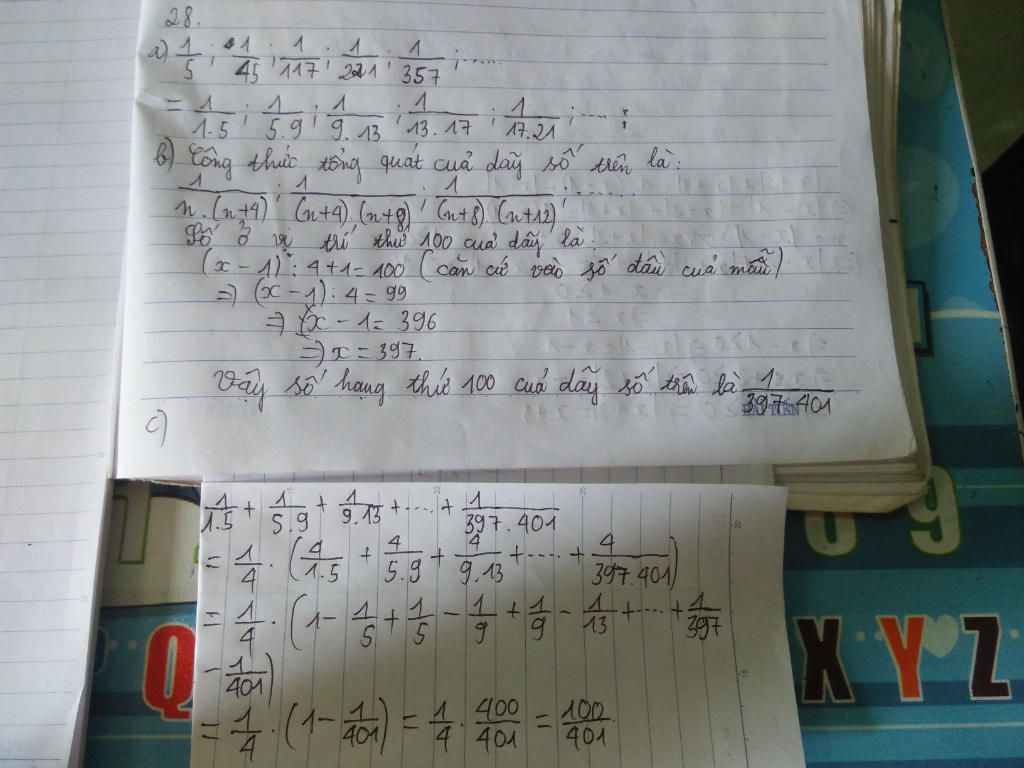 28.
a) 1/5 ; 1/45 ; 1/117 ; 1/221 ; 1/357 ; .....
= 1/1.5 ; 1/5.9 ; 1/9.13 ; 1/13.17 ; 1/17.21 ; .... ;
b) Công thức tổng quát cuả dãy số trên là:
1/n.(n+4) ; 1/(n+4).(n+8) ; 1/(n+8).(n+12) ; ......
Số ở vị trí thứ 100 cuả dãy là:
(x-1) : 4+1=100 (căn cứ vào số đầu cuả mẫu)
=> (x-1) : 4 = 99
=> x-1 = 396
=> x = 397.
Vậy số hạng thứ 100 cuả dãy số trên là 1/397.401
c)
1/1.5 + 1/5.9 + 1/9.13 + .... + 1/397.401
= 1/4 . (4/1.5 + 4/5.9 + 4/9.13 + .... + 4/397.401)
= 1/4 . (1 - 1/5 + 1/5 - 1/9 + 1/9 - 1/13 + .... + 1/397
- 1/401)
= 1/4 . (1 - 1/401) = 1/4 . 400/401 = 100/401
9
Q
X Y Z